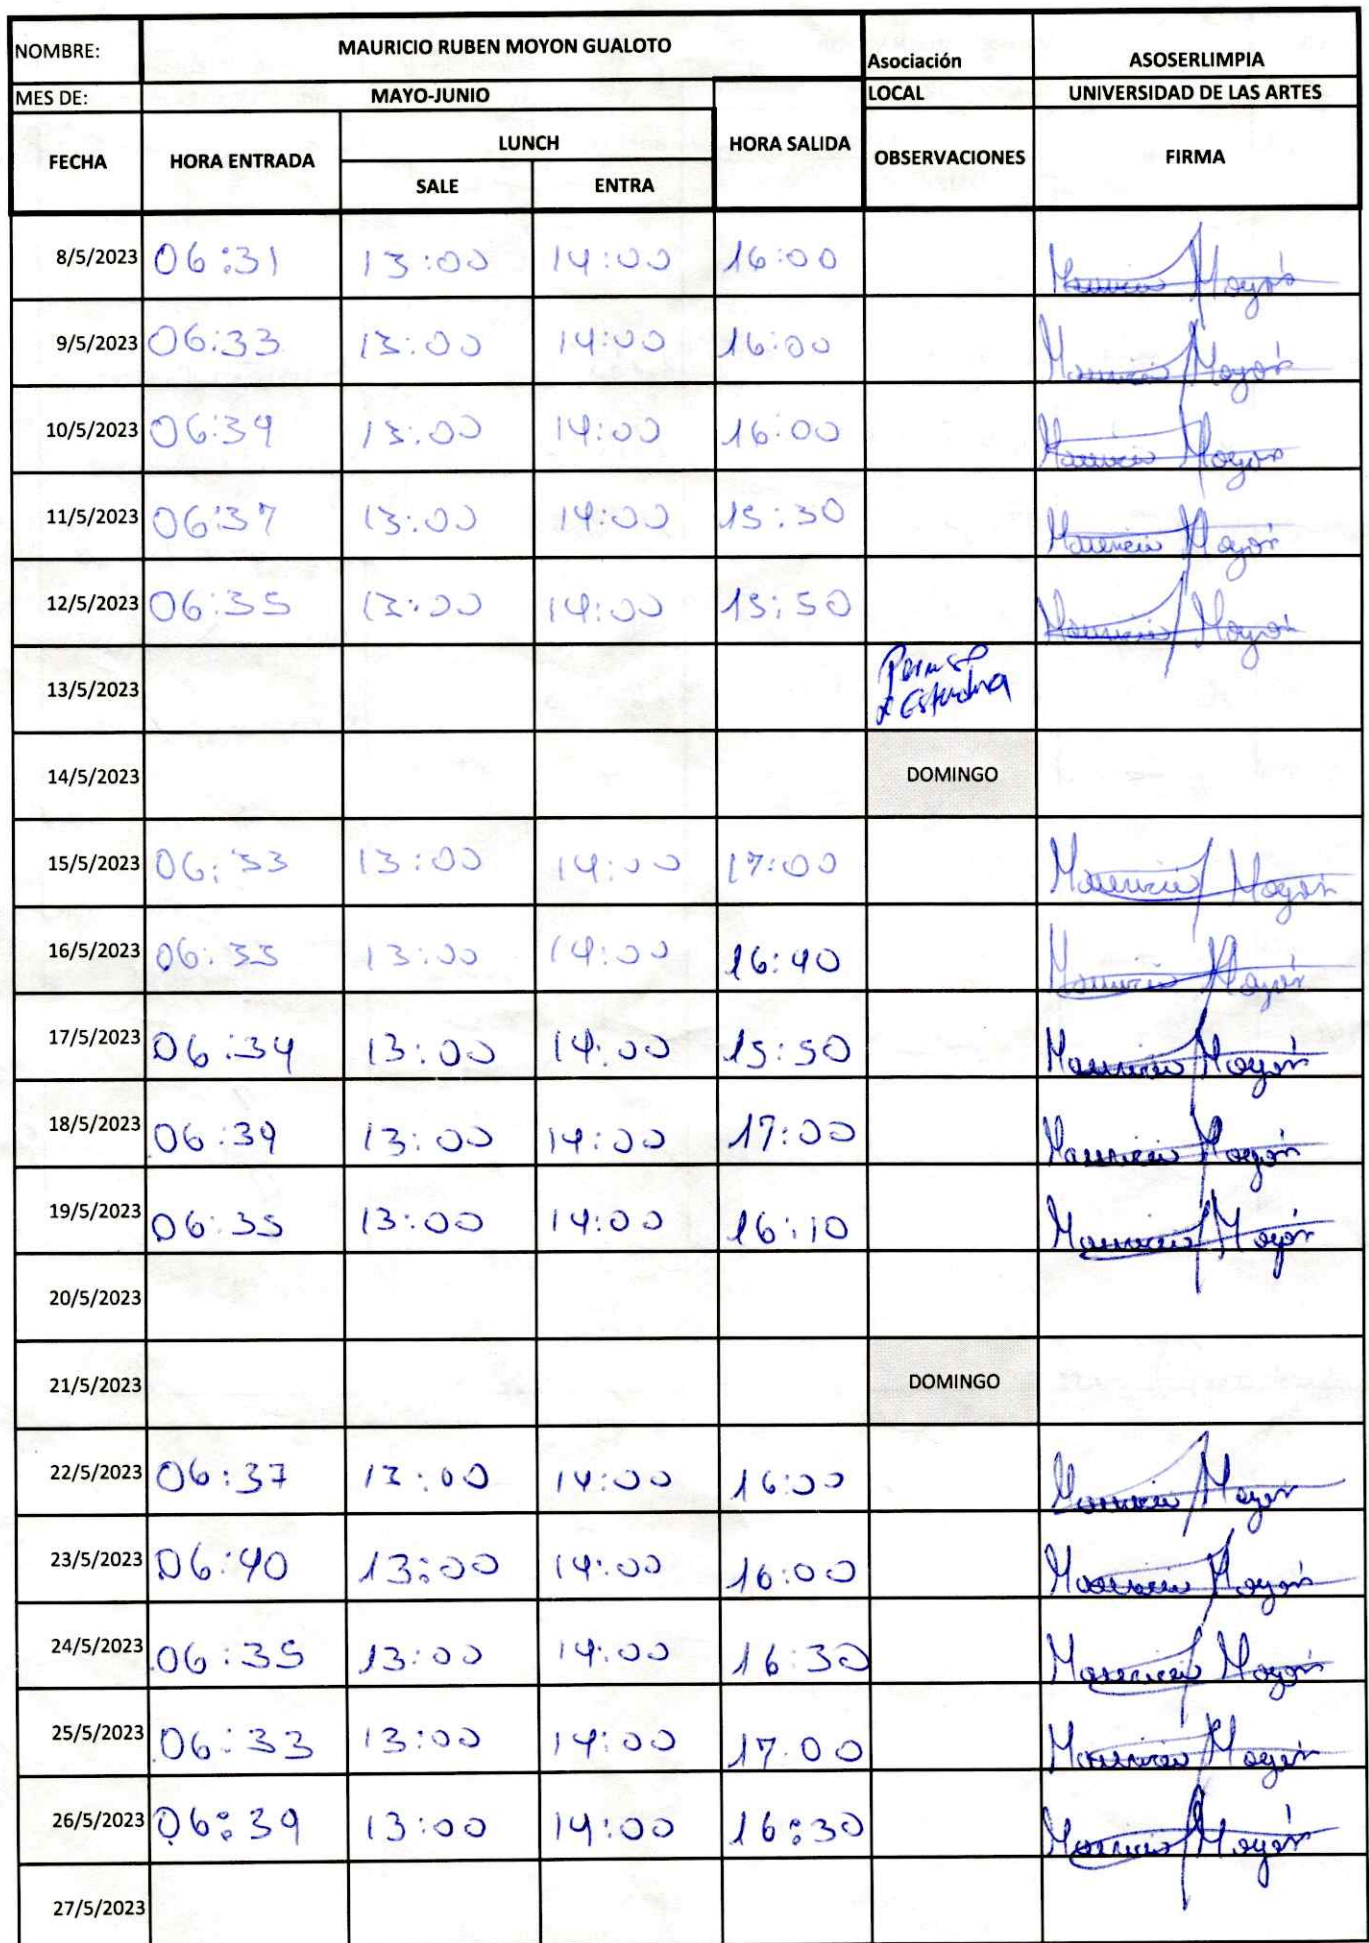 NOMBRE: MAURICIO RUBEN MOYON GUALOTO Asociación ASOSERLIMPIA
MES DE: MAYO-JUNIO LOCAL UNIVERSIDAD DE LAS ARTES
FECHA HORA ENTRADA LUNCH HORA SALIDA OBSERVACIONES FIRMA
SALE ENTRA
8/5/2023 06:31 13:00 14:00 16:00 Mauricio Moyón
9/5/2023 06:33 13:00 14:00 16:00 Mauricio Moyón
10/5/2023 06:39 13:00 14:00 16:00 Mauricio Moyón
11/5/2023 06:37 13:00 14:00 15:30 Mauricio Moyón
12/5/2023 06:35 13:00 14:00 15:50 Mauricio Moyón
13/5/2023
14/5/2023 DOMINGO
15/5/2023 06:33 13:00 14:00 17:00 Mauricio Moyón
16/5/2023 06:33 13:00 14:00 16:40 Mauricio Moyón
17/5/2023 06:34 13:00 14:00 15:50 Mauricio Moyón
18/5/2023 06:39 13:00 14:00 17:00 Mauricio Moyón
19/5/2023 06:35 13:00 14:00 16:10 Mauricio Moyón
20/5/2023
21/5/2023 DOMINGO
22/5/2023 06:37 13:00 14:00 16:00 Mauricio Moyón
23/5/2023 06:40 13:00 14:00 16:00 Mauricio Moyón
24/5/2023 06:35 13:00 14:00 16:30 Mauricio Moyón
25/5/2023 06:33 13:00 14:00 17:00 Mauricio Moyón
26/5/2023 06:39 13:00 14:00 16:30 Mauricio Moyón
27/5/2023